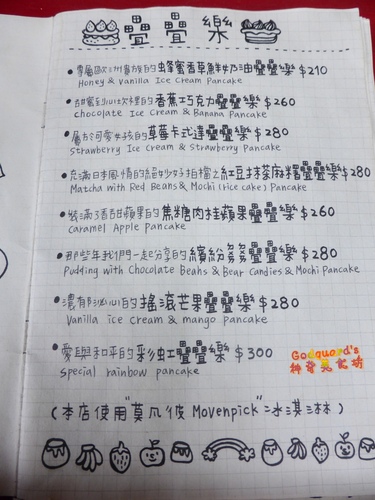 疊疊樂
專屬歐洲貴族的蜂蜜香草鮮奶油疊疊樂 $210
Honey & Vanilla Ice Cream Pancake
甜蜜到心坎裡的香蕉巧克力疊疊樂 $260
chocolate Ice Cream & Banana Pancake
屬於可愛女孩的草莓卡式達疊疊樂 $280
Strawberry Ice Cream & Strawberry Pancake
充滿日本風情的絕妙好拍檔之紅豆抹茶麻糬疊疊樂 $280
Matcha with Red Beans & Mochi (rice cake) Pancake
裝滿酒甜蘋果的焦糖肉桂蘋果疊疊樂 $260
Caramel Apple Pancake
那些年我們一起分享的繽紛ㄋㄋ疊疊樂 $280
Pudding with Chocolate Beans & Bear Candies & Mochi Pancake
濃郁沁心的搖滾芒果疊疊樂 $280
Vanilla ice cream & mango pancake
愛與和平的彩虹疊疊樂 $300
special rainbow pancake
Godguard's
神奇憑記坊
(本店使用"莫凡彼 Movenpick"冰淇淋)